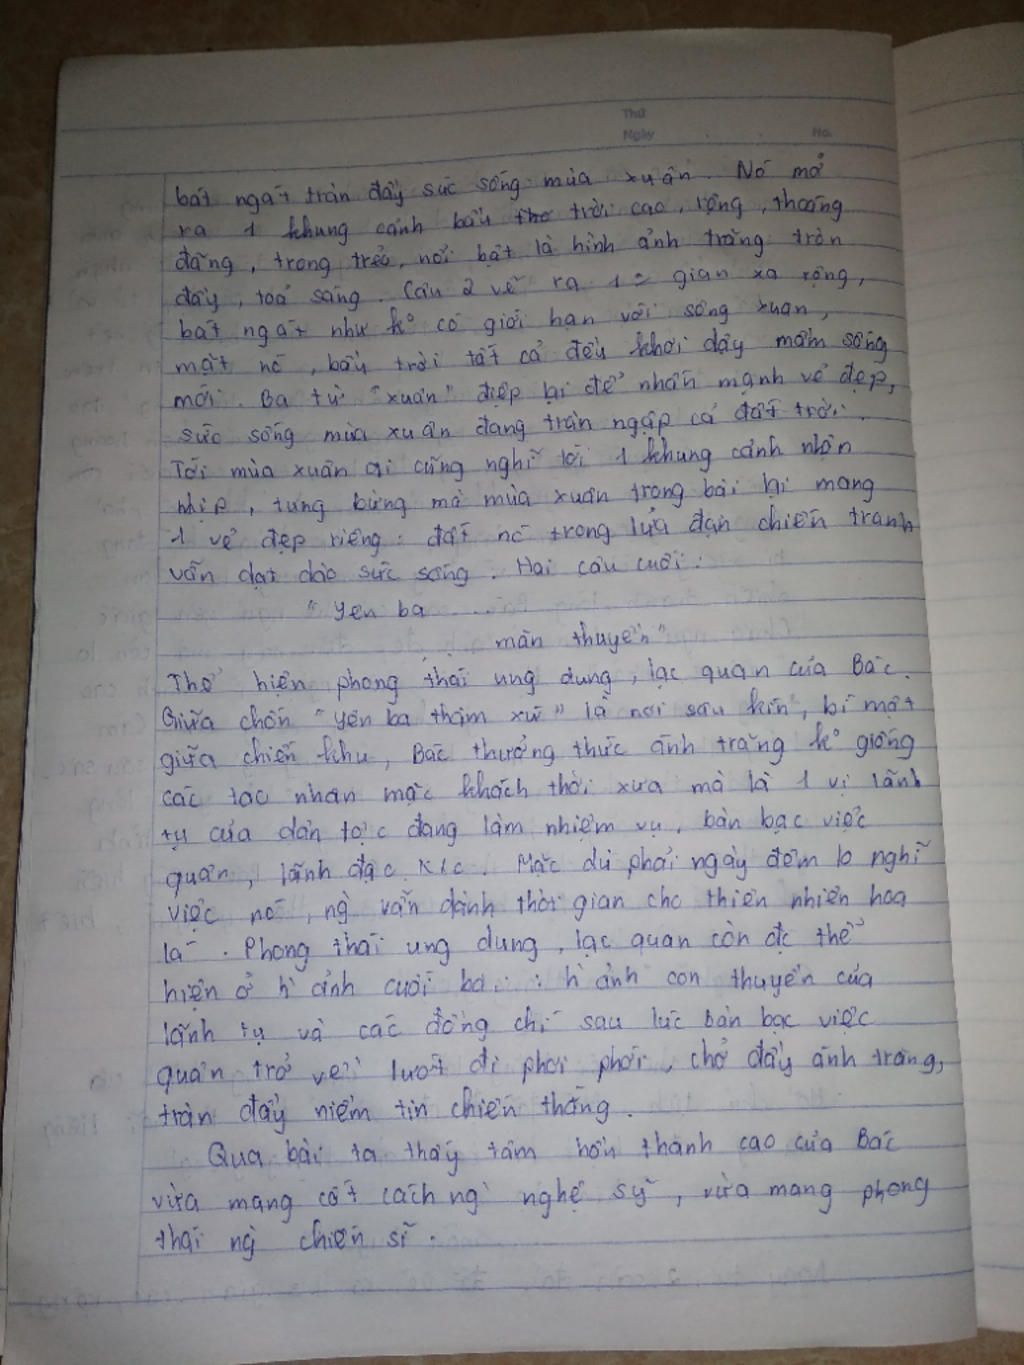 Thứ
Ngày
No.
bát ngát tràn đầy sức sống mùa xuân. Nó mở
ra 1 khung cảnh bầu trời cao, rộng, thoáng
đãng, trong trẻo, nổi bật là hình ảnh trăng tròn
đầy, toả sáng. Câu 2 vẽ ra 1 gian xa rộng,
bát ngát như ko có giới hạn với sông xuân,
mặt nc, bầu trời tất cả đều khơi dậy mầm sống
mới. Ba từ "xuân" điệp lại để nhấn mạnh vẻ đẹp,
sức sống mùa xuân đang tràn ngập cả đất trời.
Tới mùa xuân ai cũng nghĩ tới 1 khung cảnh nhộn
nhịp, tưng bừng mà mùa xuân trong bài lại mang
1 vẻ đẹp riêng: đất nc trong lửa đạn chiến tranh
vẫn dạt dào sức sống. Hai câu cuối:
"Yên ba ....
mãn thuyền"
Thể hiện phong thái ung dung, lạc quan của Bác.
Giữa chốn "yên ba thâm xứ" là nơi sâu kín, bí mật
giữa chiến khu, Bác thưởng thức ánh trăng ko giống
các tao nhân mặc khách thời xưa mà là 1 vị lãnh
tụ của dân tộc đang làm nhiệm vụ, bàn bạc việc
quân, lãnh đạo K/c. Mặc dù phải ngày đêm lo nghĩ
việc nc, ng` vẫn dành thời gian cho thiên nhiên hoa
lá. Phong thái ung dung, lạc quan còn đc thể
hiện ở h` ảnh cuối bài: h` ảnh con thuyền của
lãnh tụ và các đồng chí sau lúc bàn bạc việc
quân trở về lướt đi phơi phới, chở đầy ánh trăng,
tràn đầy niềm tin chiến thắng.
Qua bài ta thấy tâm hồn thanh cao của Bác
vừa mang cốt cách ng` nghệ sỹ, vừa mang phong
thái ng` chiến sĩ.